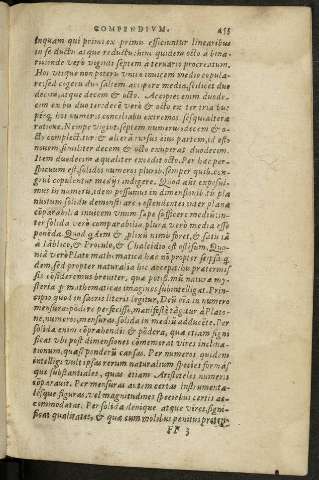 COMPENDIVM. 455
inquam qui primi ex primis efficiuntur linearibus
in se ductis atque reductis: hinc quidem octo à bina-
rio: inde verò viginti septem à ternario procreatum.
Hoi utique non poterit vnico inuicem medio copula-
ri: sed cigeru duo saltem accipere media, scilicet duo
decim, atque decem & octo. Accipies enim duode-
cim ex bis duo ter: decē verò & octo ex ter tria bis:
hos numeros conciliabit extremos sesquialtera
ratione. Nempe viginti septem numerus decem & o-
cto complectitur & alterā rursus eius partem, id est
nouem, similiter decem & octo exuperat duodecim.
Item duodecim æqualiter excedit octo. Per hæc per-
spicuum est, solidos numeros pluris. semper quib. con-
grui copulentur medijs indigere. Quod aūt exposui-
mus in numeris, idem possumus in dimensionib.
solidis demonstrare: ostendentes inter plana
cōparabilia inuicem vnum sæpe sufficere mediū: in-
ter solida verò comparabilia plura verò media esse
ponēda. Quod quidem & plixū nimis foret, & satis iā
à Iāblico, & Proculo, & Chalcidio est ostēsum. Quo-
niā verò Plato mathematica hæc nō propter seipsa q-
dem, sed propter naturalia huc accepit: ob præter-
sis cōsideremus breuiter, quæ potiss. mū naturæ my-
steria p mathematicas imagines subintelligat. Prin-
cipio quod in sacris literis legitur, Deū oīa in numero
mensura pōdere perfecisse, manifestè tāgitur à Plato-
ne, numeros, mensuras, solida in mediū adducēte. Per
solida enim cōprahendit & pōdera, quæ etiam signi
ficat vbi post dimensiones cōmemorat vires inclina-
tionum, quasi ponderū causas. Per numeros quidem
intelligi vult ipsas rerum naturalium species formás-
que substantiales, quas etiam Aristoteles numeris
cōparauit. Per mensuras autem certas instrumenta-
lesque figuras, vel magnitudines speciebus certis ac-
commodatas. Per solida denique atque vires, signi-
ficat qualitates, & quæ cum molibus penitus
FF 3